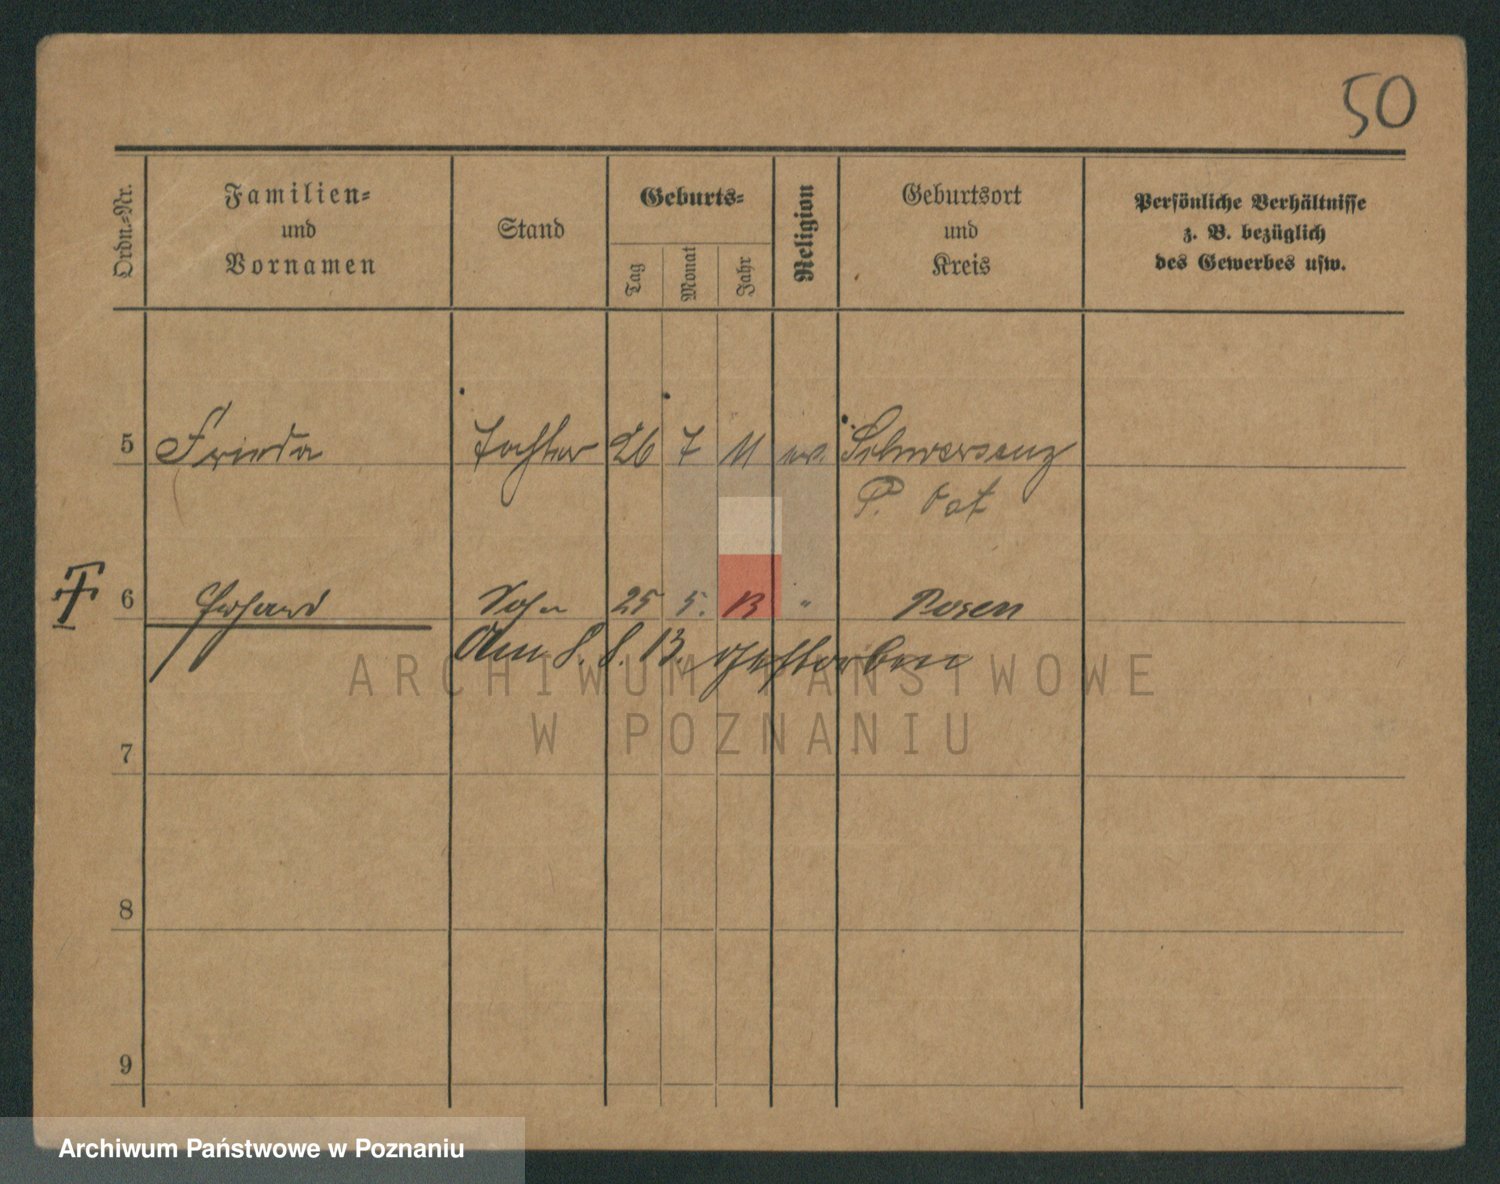 50
Ordn.-Nr. Familien- und Vornamen Stand Geburts- Tag Monat Jahr Religion Geburtsort und Kreis Persönliche Verhältnisse z. B. bezüglich des Gewerbes usw.
5 Frieda Tochter 26 7 11 ev. Schwersenz
P. Ost
6 Gerhard Sohn 25 5. 13 " Posen
Am 8. 8. 13. gestorben
ARCHIWUM PAŃSTWOWE
W POZNANIU
7
8
9
Archiwum Państwowe w Poznaniu